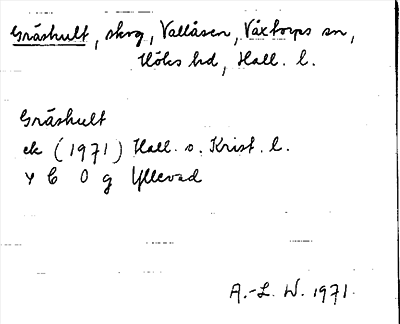 Gråshult, skog, Vallåsen, Växtorps sn,
Höks hd, Hall. l.
Gråshult
ek (1971) Hall. o. Krist. l.
4 C 0 g Yllevad
A.-L. W. 1971.